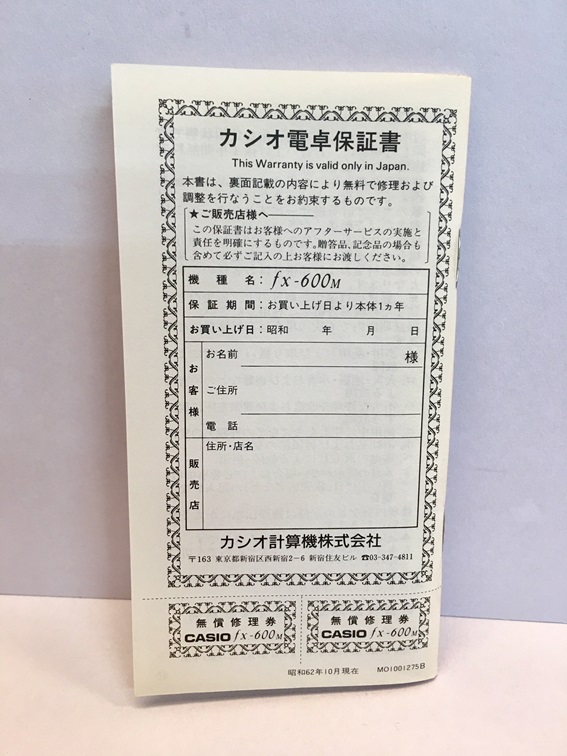 カシオ電卓保証書
This Warranty is valid only in Japan.
本書は、裏面記載の内容により無料で修理および
調整を行なうことをお約束するものです。
★ご販売店様へ
この保証書はお客様へのアフターサービスの実施と
責任を明確にするものです。贈答品、記念品の場合も
含めて必ずご記入の上お客様にお渡しください。
機種名：fx-600M
保証期間：お買い上げ日より本体1ヵ年
お買い上げ日：昭和 年 月 日
お客様
お名前 様
ご住所
電話
販売店
住所・店名
カシオ計算機株式会社
〒163 東京都新宿区西新宿2-6 新宿住友ビル ☎03-347-4811
無償修理券
CASIO fx-600M
無償修理券
CASIO fx-600M
昭和62年10月現在 MO1001275B